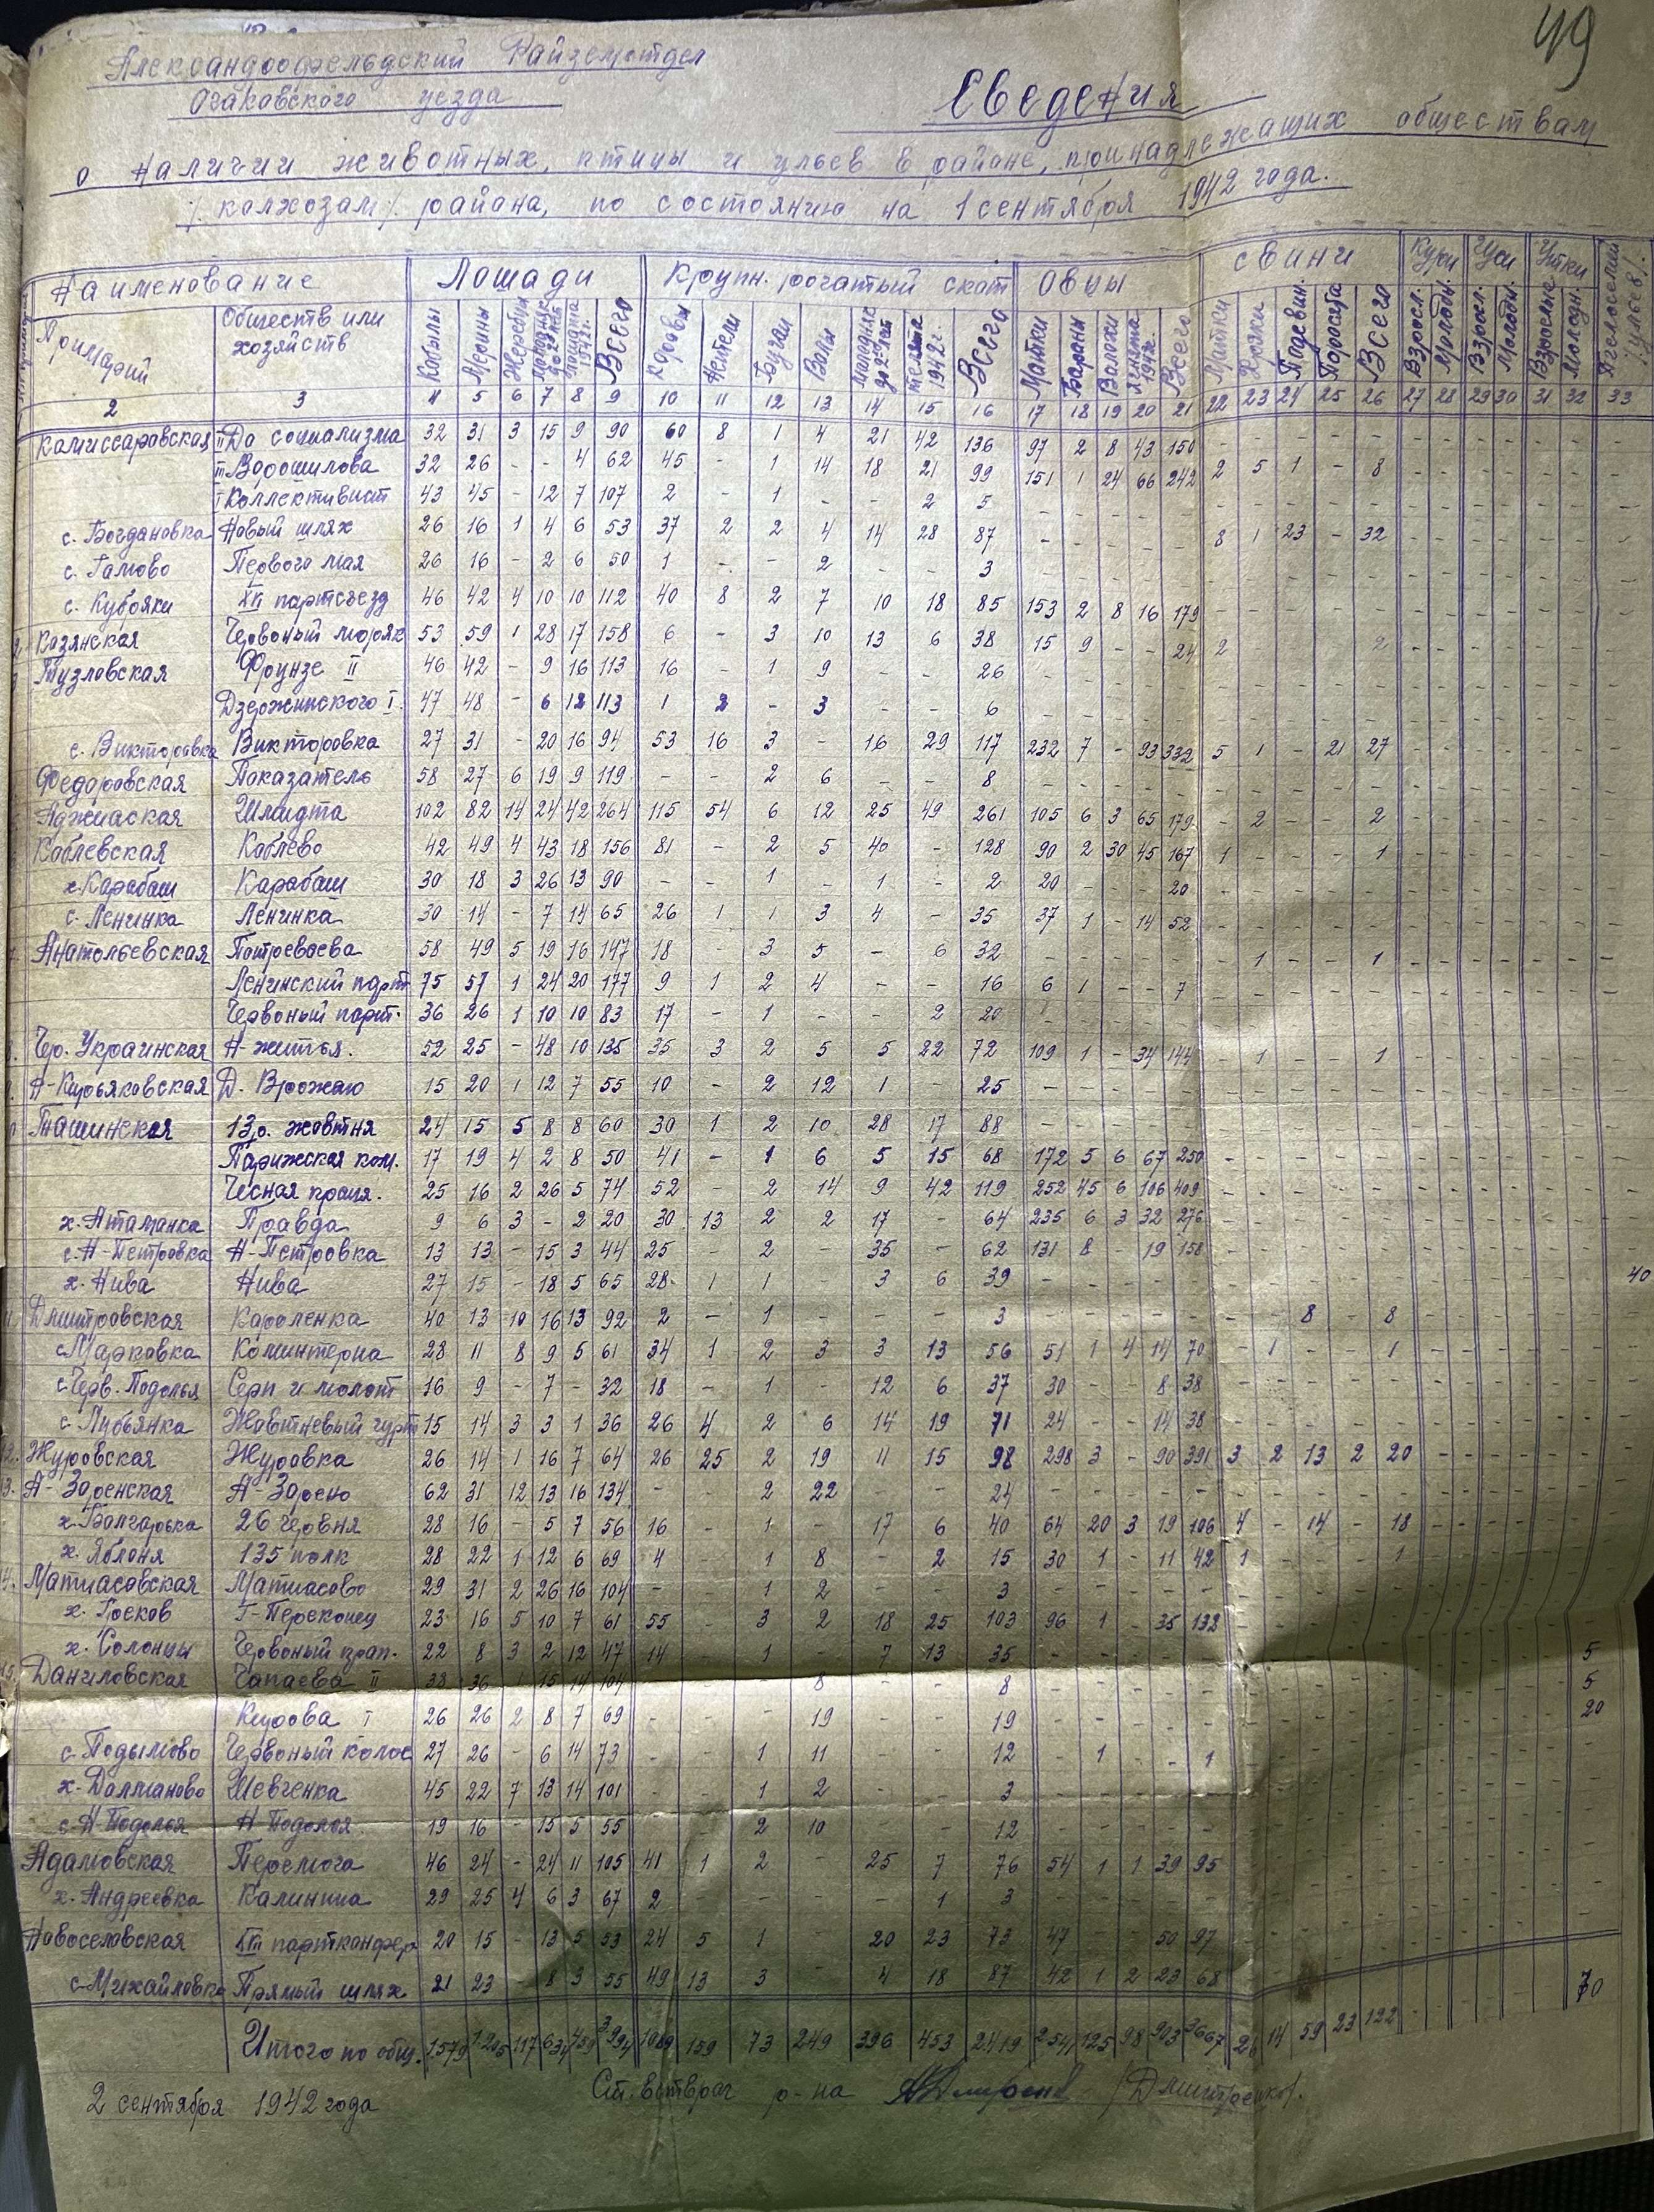 49
Александрофельдский Райземотдел
Очаковского уезда
Сведения
о наличии животных, птицы и ульев в районе, принадлежащих обществам
/колхозам/ района, по состоянию на 1 сентября 1942 года.
Наименование Лошади Крупн. рогатый скот Овцы Свиньи Куры Гуси Утки Пчелосемьи /ульев/
Примарий Обществ или хозяйств Кобылы Мерины Жеребцы Молодняк до 2х лет Лошата 1942г. Всего Коровы Нетели Бугаи Волы Молодняк до 2х лет телята 1942г. Всего Матки Бараны Валахи Ягнята 1942г. Всего Матки Хряки Подсвин. Поросята Всего Взросл. Молодн. Взросл. Молодн. Взрослые Молодн.
2 3 4 5 6 7 8 9 10 11 12 13 14 15 16 17 18 19 20 21 22 23 24 25 26 27 28 29 30 31 32 33
Комиссаровская II До социализма 32 31 3 15 9 90 60 8 1 4 21 42 136 97 2 8 43 150
III Ворошилова 32 26 - - 4 62 45 - 1 14 18 21 99 151 1 24 66 242 2 5 1 - 8
I Коллективист 43 45 - 12 7 107 2 - 1 - - 2 5
с. Богдановка Новый шлях 26 16 1 4 6 53 37 2 2 4 14 28 87 - - - - - 8 1 23 - 32
с. Гамово Первого мая 26 16 - 2 6 50 1 - - 2 3
с. Кубряки XVI партсъезд 46 42 4 10 10 112 40 8 2 7 10 18 85 153 2 8 16 179
Козянская Червоный моряк 53 59 1 28 17 158 6 - 3 10 13 6 38 15 9 - - 24 2 2
Тузловская Фрунзе II 46 42 - 9 16 113 16 - 1 9 - - 26
Дзержинского I. 47 48 - 6 12 113 1 2 - 3 - - 6
с. Викторовка Викторовка 27 31 - 20 16 94 53 16 3 - 16 29 117 232 7 - 93 332 5 1 - 21 27
Федоровская Показатель 58 27 6 19 9 119 - - 2 6 - - 8
Аджиаская Шмидта 102 82 14 24 42 264 115 54 6 12 25 49 261 105 6 3 65 179 - 2 - - 2
Коблевская Коблево 42 49 4 43 18 156 81 - 2 5 40 - 128 90 2 30 45 167 1 - - - 1
х. Карабаш Карабаш 30 18 3 26 13 90 - - 1 - 1 - 2 20 - - - 20
с. Ленинка Ленинка 30 14 - 7 14 65 26 1 1 3 4 - 35 37 1 - 14 52
7. Анатольевская Потреваева 58 49 5 19 16 147 18 - 3 5 - 6 32 - - - - - - 1 - - 1
Ленинский парт. 75 57 1 24 20 177 9 1 2 4 - - 16 6 1 - - 7
Червоный парт. 36 26 1 10 10 83 17 - 1 - - 2 20
Чер. Украинская Н-життья. 52 25 - 48 10 135 35 3 2 5 5 22 72 109 1 - 34 144 - 1 - - 1
А-Курьяковская Д. Врожаю 15 20 1 12 7 55 10 - 2 12 1 25
Ташинская 13р. жовтня 24 15 5 8 8 60 30 1 2 10 28 17 88
Парижская ком. 17 19 4 2 8 50 41 - 1 6 5 15 68 172 5 6 67 250
Чесная праця. 25 16 2 26 5 74 52 - 2 14 9 42 119 252 45 6 106 409
х. Атаманка Правда 9 6 3 - 2 20 30 13 2 2 17 - 64 235 6 3 32 276
с. Н-Петровка Н-Петровка 13 13 - 15 3 44 25 - 2 - 35 62 131 8 - 19 158
х. Нива Нива 27 15 - 18 5 65 28 1 1 3 6 39 40
11. Дмитровская Короленка 40 13 10 16 13 92 2 - 1 - - - 3 8 8
с. Марковка Коминтерна 28 11 8 9 5 61 34 1 2 3 3 13 56 51 1 4 14 70 - 1 - - 1
с. Черв. Подолья Серп и молот 16 9 - 7 - 32 18 - 1 - 12 6 37 30 - - 8 38
с. Лубянка Жовтневый гурт 15 14 3 3 1 36 26 4 2 6 14 19 71 24 - - 14 38
12. Журовская Журовка 26 14 1 16 7 64 26 25 2 19 11 15 98 298 3 - 90 391 3 2 13 2 20
13. А-Зоренская А-Зорено 62 31 12 13 16 134 - - 2 22 - - 24
х. Болгарька 26 червня 28 16 - 5 7 56 16 - 1 - 17 6 40 64 20 3 19 106 4 - 14 - 18
х. Яблоня 135 полк 28 22 1 12 6 69 4 - 1 8 - 2 15 30 1 - 11 42 1 1
14. Матиасовская Матиасово 29 31 2 26 16 104 - 1 2 3
х. Греков Г-Переконец 23 16 5 10 7 61 55 3 2 18 25 103 96 1 - 35 132
х. Солонцы Червоный прап. 22 8 3 2 12 47 14 - 1 7 13 35 5
15. Даниловская Чапаева II 38 36 1 15 14 104 8 8 5
Кирова I 26 26 2 8 7 69 - - - 19 - - 19 20
с. Подымово Червоный колос 27 26 - 6 14 73 - - 1 11 - - 12 - 1 - - 1
х. Далманово Шевченка 45 22 7 13 14 101 - - 1 2 - - 3
с. Н-Подолья Н-Подолья 19 16 - 15 5 55 2 10 12
Адамовская Перемога 46 24 - 24 11 105 41 1 2 - 25 7 76 54 1 1 39 95
х. Андреевка Калинина 29 25 4 6 3 67 2 - - - - 1 3
Новоселовская XVII партконфер 20 15 - 13 5 53 24 5 1 20 23 73 47 - - 50 97
с. Михайловка Прямый шлях 21 23 - 8 3 55 49 13 3 - 4 18 87 42 1 2 23 68 70
Итого по общ. 1579 1205 117 634 459 3994 1089 159 73 249 396 453 2419 2541 125 98 903 3667 26 14 59 23 122
2 сентября 1942 года Ст. ветврач р-на /Дмитренко/.